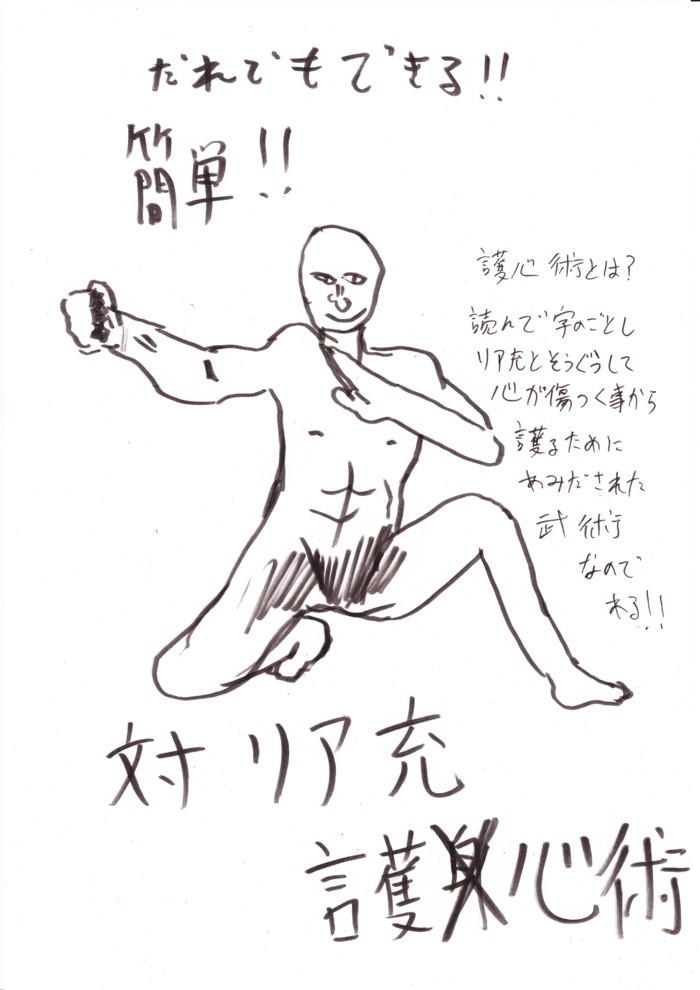 だれでもできる!!
簡単!!
護心術とは?
読んで字のごとし
リア充とそうぐうして
心が傷つく事から
護るために
あみだされた
武術
なので
ある!!
対リア充
護身心術